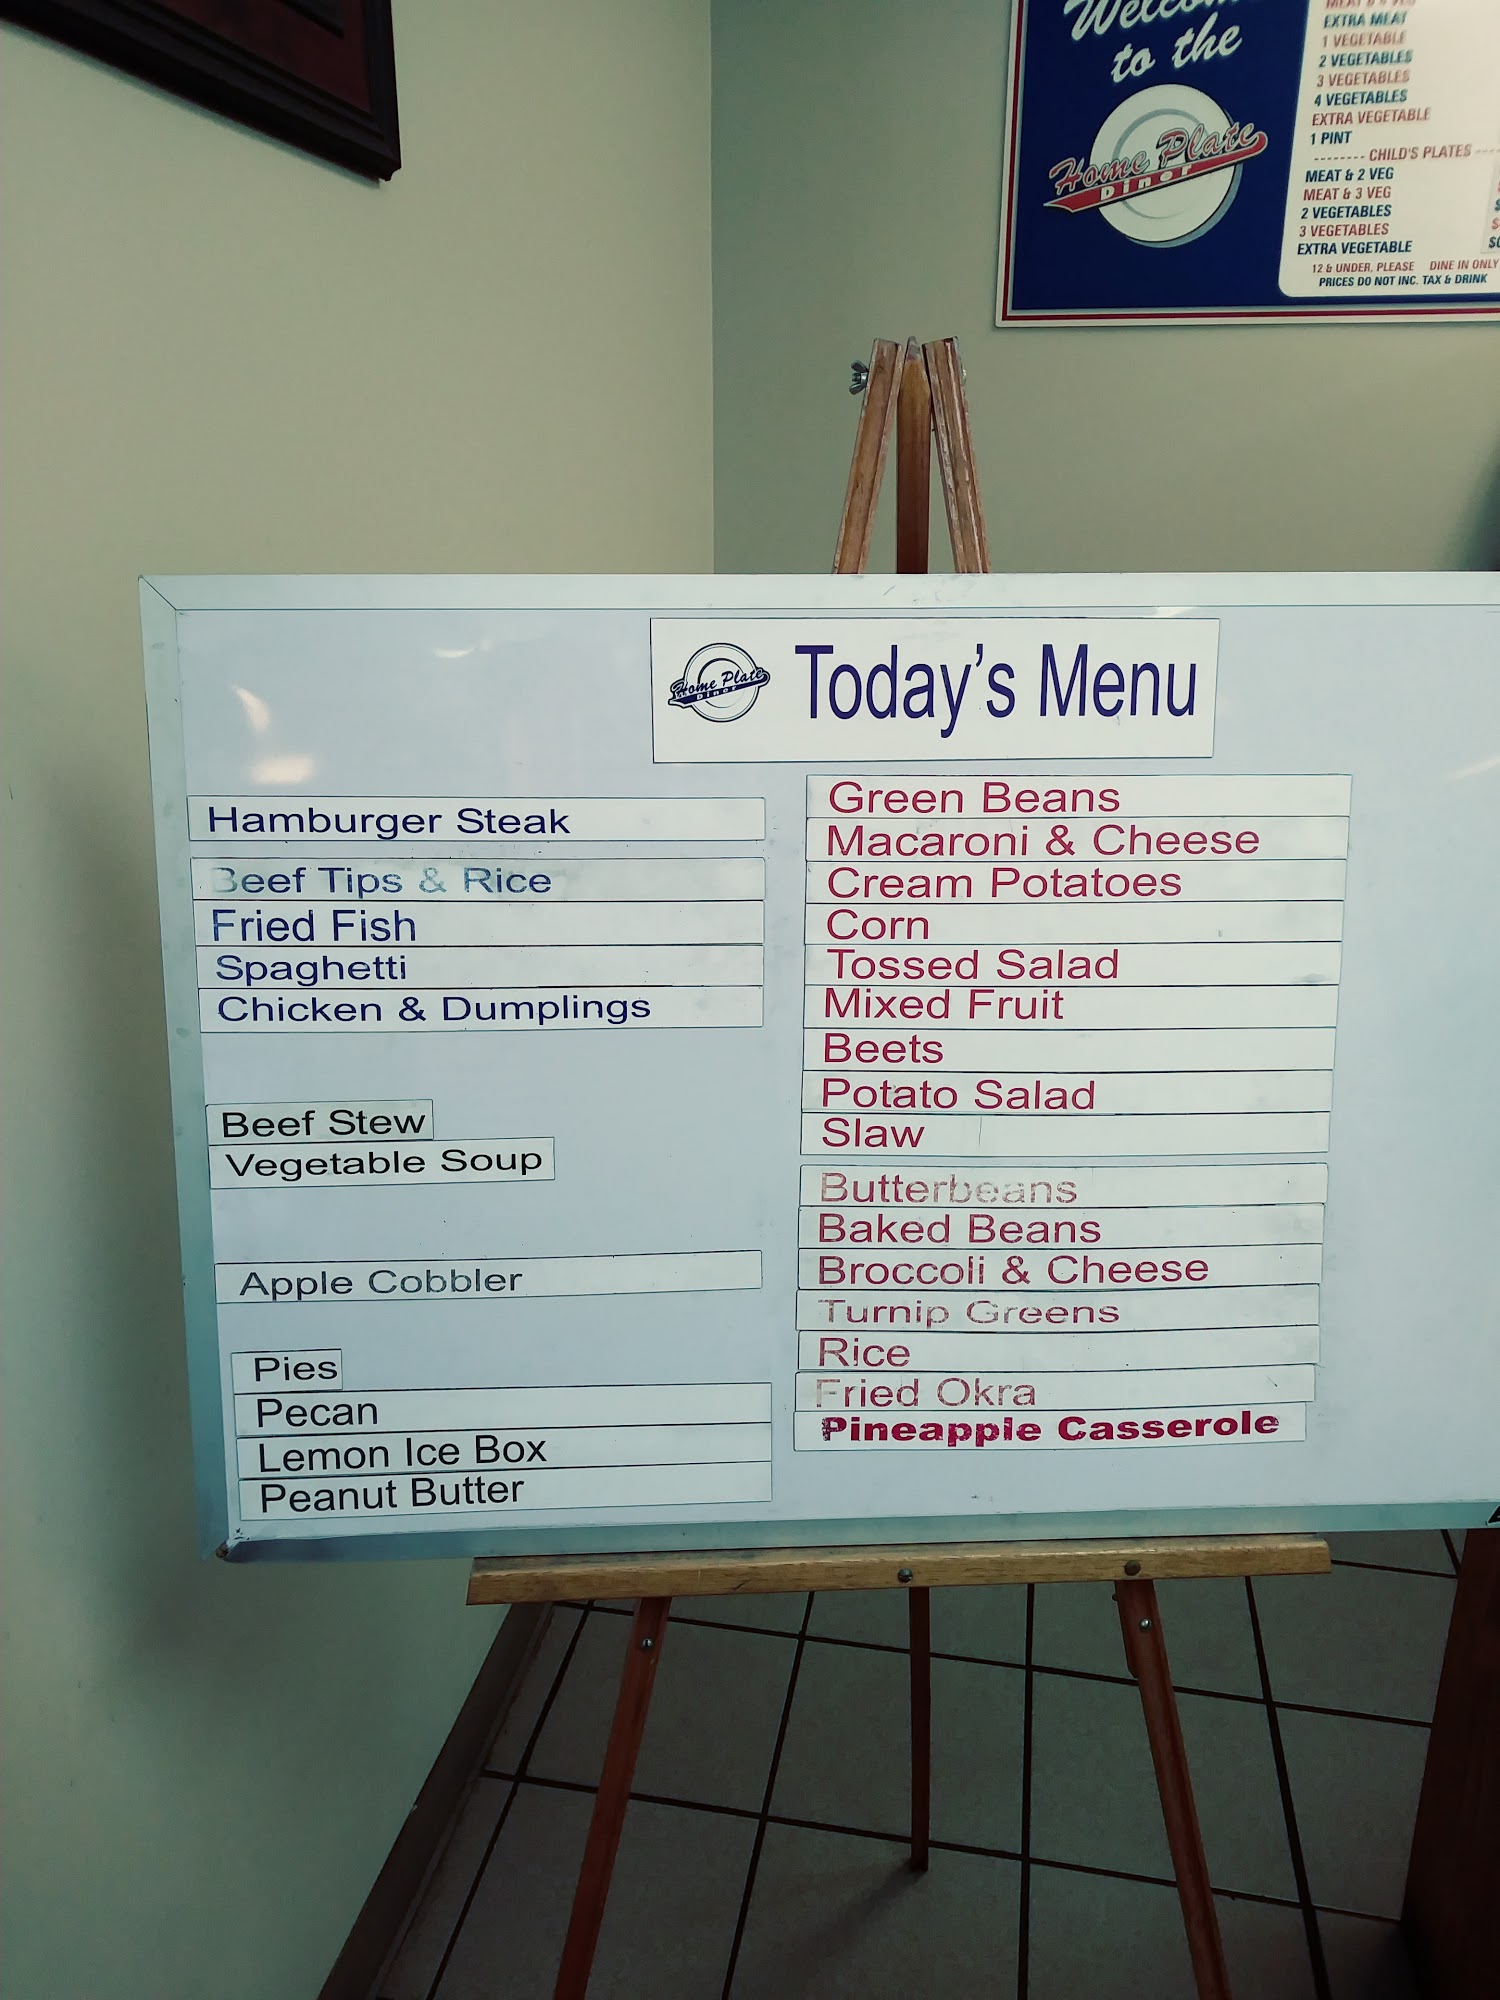 Welcome
to the
Home Plate
Diner
EXTRA MEAT
1 VEGETABLE
2 VEGETABLES
3 VEGETABLES
4 VEGETABLES
EXTRA VEGETABLE
1 PINT
-------- CHILD'S PLATES ----
MEAT & 2 VEG
MEAT & 3 VEG
2 VEGETABLES
3 VEGETABLES
EXTRA VEGETABLE
12 & UNDER, PLEASE DINE IN ONLY
PRICES DO NOT INC. TAX & DRINK
Home Plate
Diner
Today's Menu
Hamburger Steak
Beef Tips & Rice
Fried Fish
Spaghetti
Chicken & Dumplings
Beef Stew
Vegetable Soup
Apple Cobbler
Pies
Pecan
Lemon Ice Box
Peanut Butter
Green Beans
Macaroni & Cheese
Cream Potatoes
Corn
Tossed Salad
Mixed Fruit
Beets
Potato Salad
Slaw
Butterbeans
Baked Beans
Broccoli & Cheese
Turnip Greens
Rice
Fried Okra
Pineapple Casserole